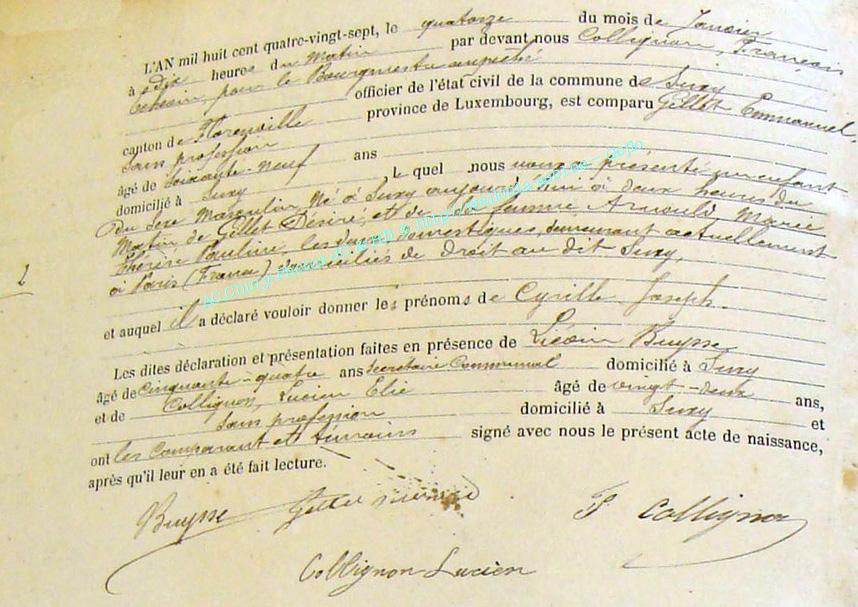 L'AN mil huit cent quatre-vingt-sept, le quatorze du mois de Janvier
à dix heures du Matin par devant nous Collignon, François
Echevin, pour le Bourgmestre empêché
officier de l'état civil de la commune de Suxy
canton de Florenville province de Luxembourg, est comparu Gillet Emmanuel,
sans profession
âgé de soixante-neuf ans
domicilié à Suxy, le quel nous a présenté un enfant
du sexe Masculin Né à Suxy aujourd'hui à deux heures du
Matin de Gillet Désiré, et de sa femme Arnould, Marie
Thérèse Pauline, les deux domestiques, demeurant actuellement
à Paris (France) domiciliés de Droit au dit Suxy,
2
et auquel il a déclaré vouloir donner les prénoms de Cyrille Joseph.
Les dites déclaration et présentation faites en présence de Liévin Buysse
âgé de cinquante-quatre ans Secrétaire Communal domicilié à Suxy
et de Collignon, Lucien Elie âgé de vingt-deux ans,
sans profession domicilié à Suxy et
ont les comparant et témoins signé avec nous le présent acte de naissance,
après qu'il leur en a été fait lecture.
Buysse Gillet F Collignon
Collignon Lucien